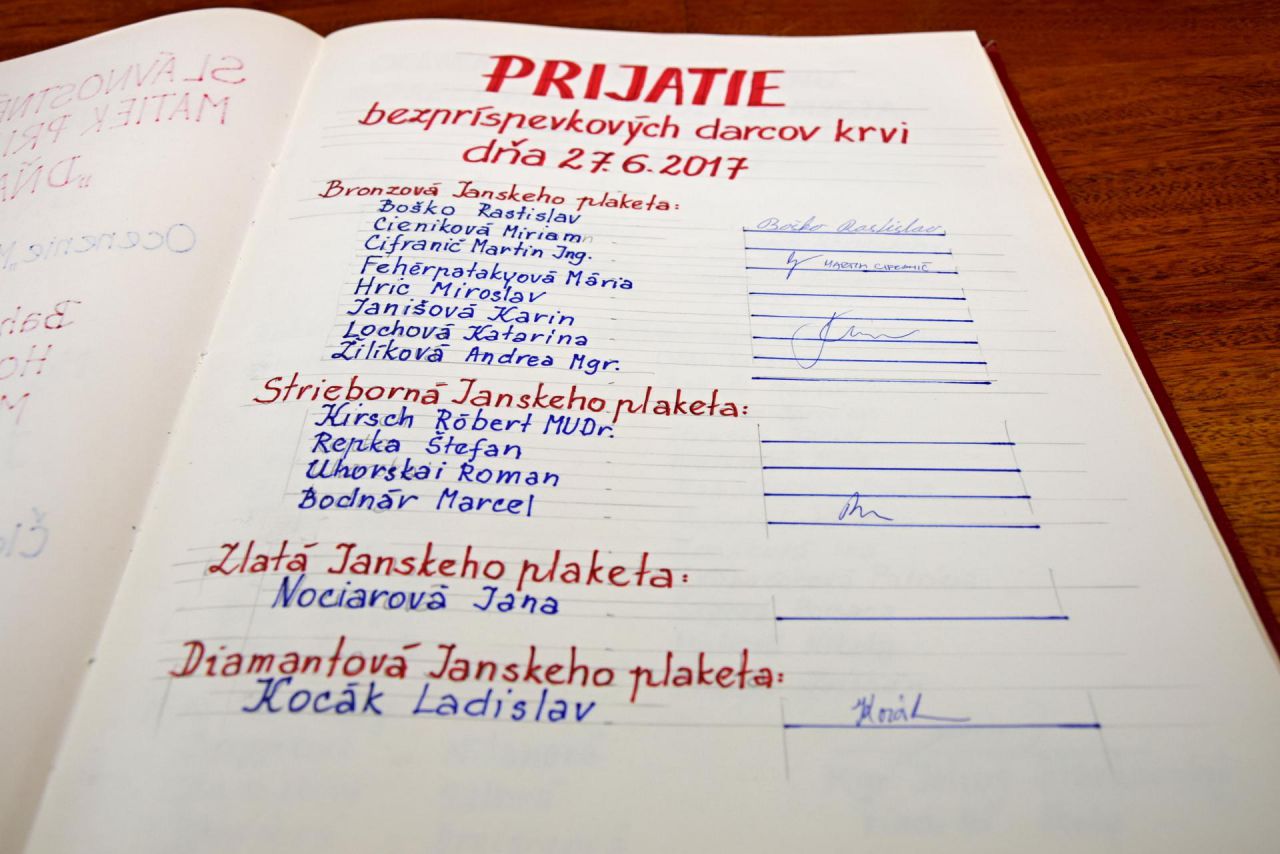 PRIJATIE
bezpríspevkových darcov krvi
dňa 27.6.2017
Bronzová Janskeho plaketa:
Boško Rastislav
Boško Rastislav
Cieniková Miriam
Cifranič Martin Ing.
MARTIN CIFRANIČ
Fehérpatakyová Mária
Hric Miroslav
Janišová Karin
Lochová Katarína
Žilíková Andrea Mgr.
Strieborná Janskeho plaketa:
Kirsch Róbert MUDr.
Repka Štefan
Uhorskai Roman
Bodnár Marcel
Zlatá Janskeho plaketa:
Nociarová Jana
Diamantová Janskeho plaketa:
Kocák Ladislav
SLÁVNOSTNÉ
MATIEK PRI
"DŇA
Ocenenie